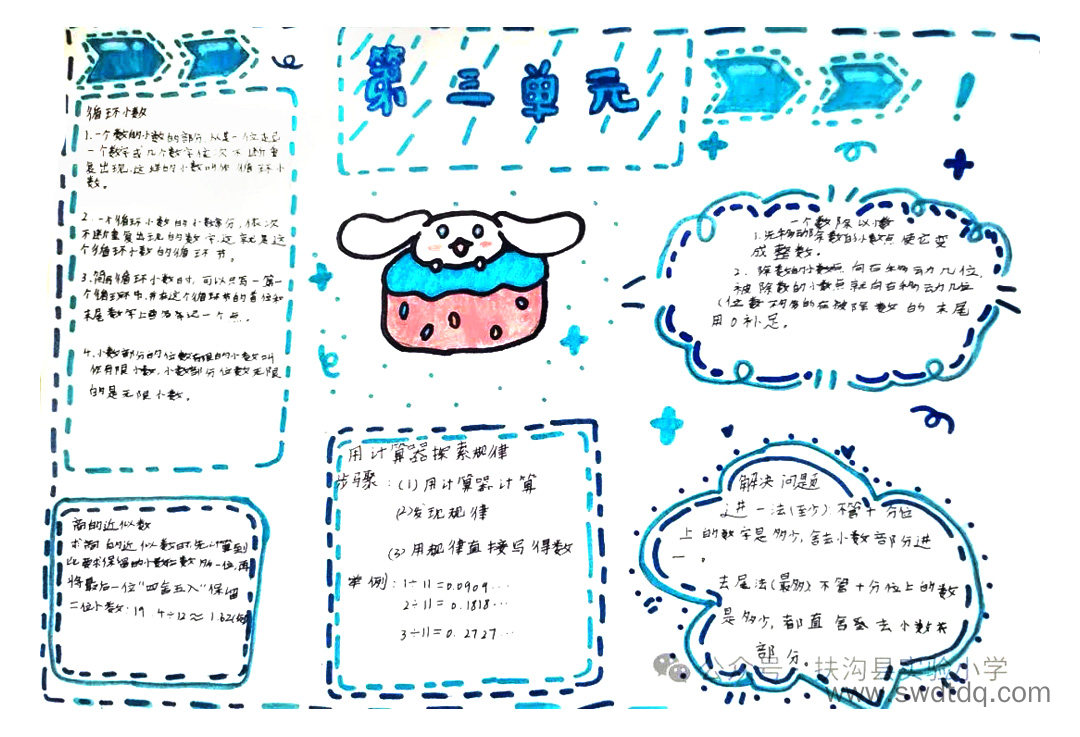 第三单元
循环小数
1.一个数的小数的部分,从某一位起
一个数字或几个数字依次不断重
复出现,这样的小数叫作循环小
数。
2.一个循环小数的小数部分,依次
不断重复出现的数字,这就是这
个循环小数的循环节。
3.简写循环小数时,可以只写第一
个循环节,并在这个循环节的首位和
末尾数字上面各记一个点。
4.小数部分的位数有限的小数叫
作有限小数,小数部分位数无限
的是无限小数。
商的近似数
求商的近似数时,先计算到
比要保留的小数位数多一位,再
将最后一位“四舍五入”保留
二位小数:19.4÷12≈1.62
用计算器探索规律
步骤:(1)用计算器计算
(2)发现规律
(3)用规律直接写得数
举例:1÷11=0.0909…
2÷11=0.1818…
3÷11=0.2727…
一个数除以小数
1.先移动除数的小数点,使它变
成整数。
2.除数的小数点向右移动几位,
被除数的小数点就向右移动几位
(位数不够的在被除数的末尾
用0补足。
解决问题
进一法(至少)不管十分位
上的数字是多少,舍去小数部分进
一。
去尾法(最多)不管十分位上的数
是多少,都直舍去小数
部分。
公众号·扶沟县实验小学
www.swdtdq.com